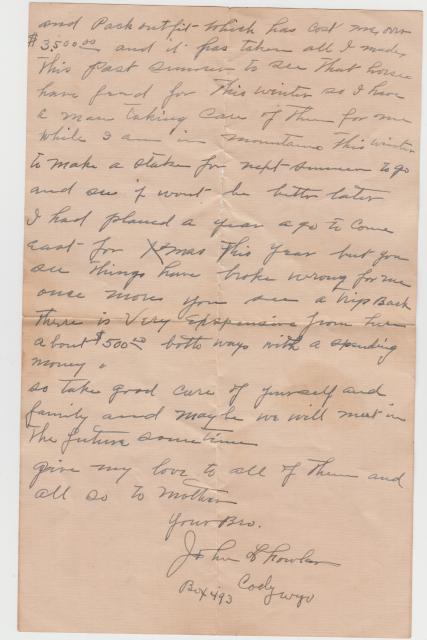 and Pack outfit which has cost me over
$3,500.00 and it has taken all I made
this past summer to see that horses
have feed for this winter so I have
a man taking care of them for me
while I am in mountains this winter
to make a stake for next summer to go
and see if wont be better later
I had planed a year ago to come
East for Xmas this year but you
see things have broke wrong for me
once more you see a trip Back
there is Very Expensive from here
about $500.00 both ways with a spending
money.
so take good care of yourself and
family and maybe we will meet in
the future sometime
give my love to all of them and
all so to Mother
Your Bro.
John
Box 493 Cody Wyo